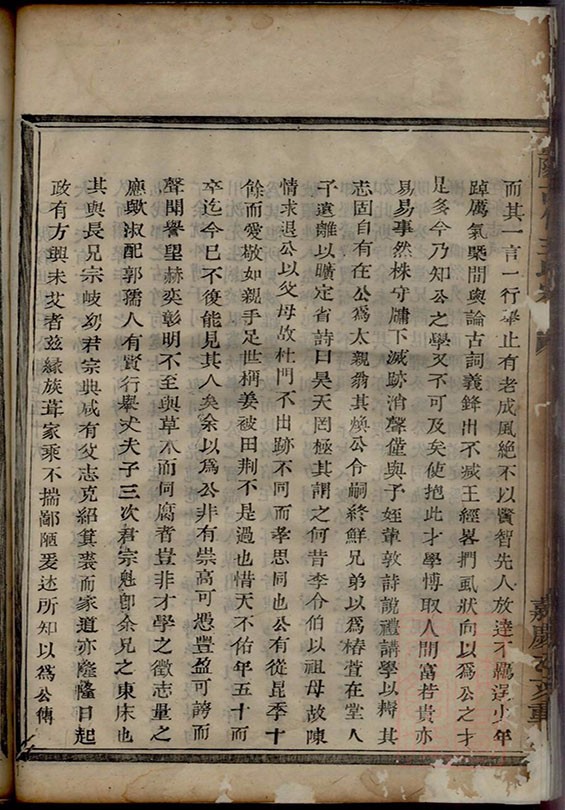 而其一言一行舉止有老成風絕不以賢智先人放達不羈逞少年
踔厲氣槩間與論古詞義鋒出不減王經畧捫虱狀向以為公之才
足多今乃知公之學又不可及矣使抱此才學博取人間富若貴亦
易易事然株守牖下滅跡消聲僅與予姪輩敦詩說禮講學以辯其
志固自有在公為太親翁其煥公令嗣終鮮兄弟以為椿萱在堂人
子遠離以曠定省詩曰昊天罔極其謂之何昔李令伯以祖母故陳
情求退公以父母故杜門不出跡不同而孝思同也公有從昆季十
餘而愛敬如親手足世稱姜被田荆不是過也惜天不佑年五十而
卒迄今已不復能見其人矣余以為公非有崇高可憑豐盈可誇而
聲聞譽望赫奕彰明不至與草木而同腐者豈非才學之徵志量之
應歟淑配郭孺人有賢行舉丈夫子三次君宗魁即余兄之東床也
其與長兄宗岐幼君宗典咸有父志克紹箕裘而家道亦隆隆日起
政有方興未艾者玆緣族葺家乘不揣鄙陋爰述所知以為公傳
嘉慶